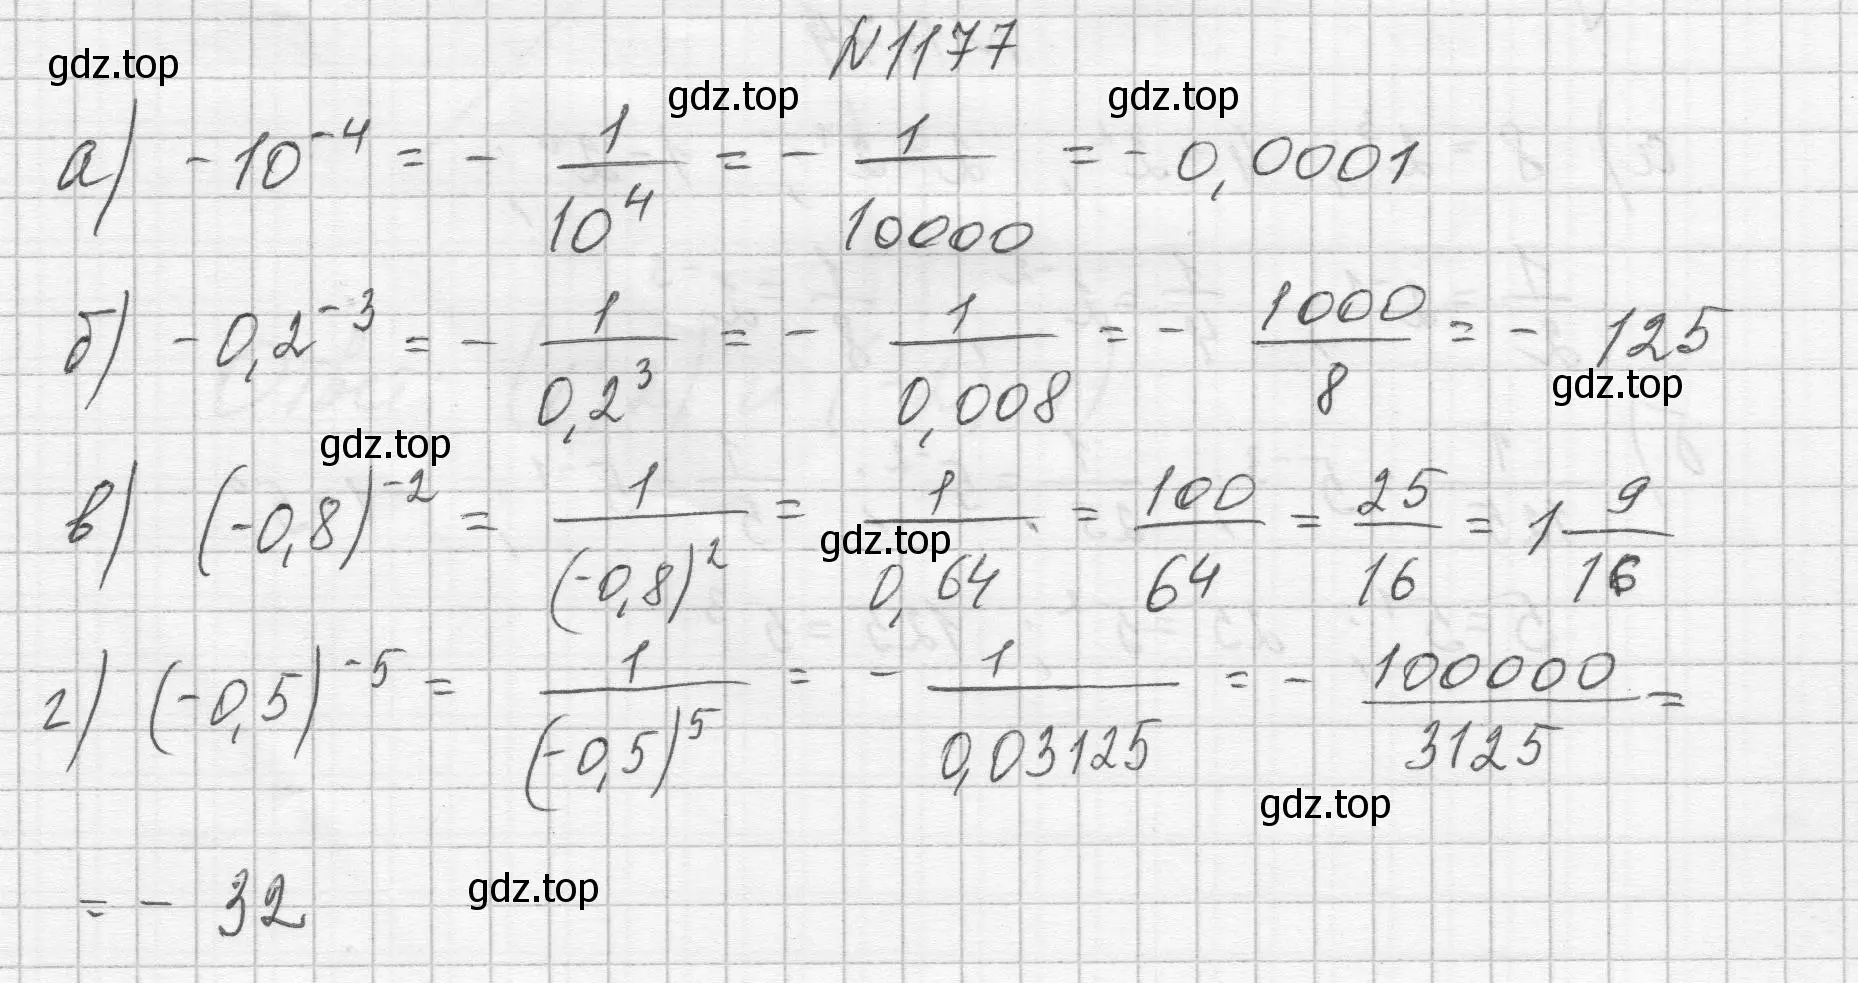 N1177
а) -10^-4 = - 1/10^4 = - 1/10000 = - 0,0001
б) -0,2^-3 = - 1/0,2^3 = - 1/0,008 = - 1000/8 = - 125
в) (-0,8)^-2 = 1/(-0,8)^2 = 1/0,64 = 100/64 = 25/16 = 1 9/16
г) (-0,5)^-5 = 1/(-0,5)^5 = - 1/0,03125 = - 100000/3125 =
= - 32
gdz.top
gdz.top
gdz.top
gdz.top
gdz.top
gdz.top
gdz.top
gdz.top